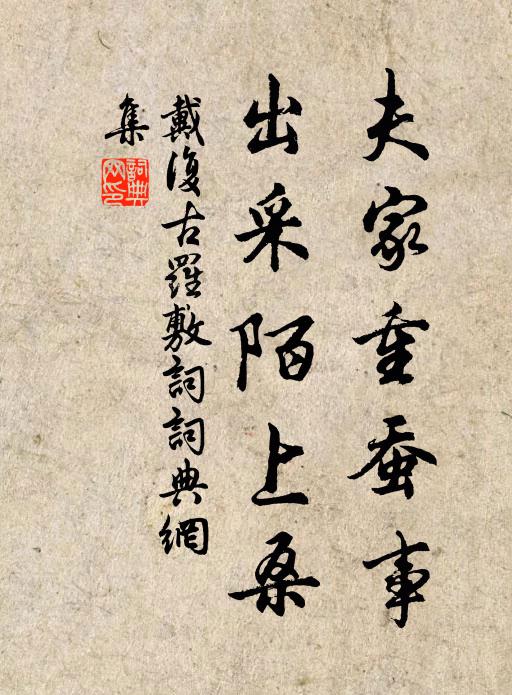 夫家重蚕事
出采陌上桑
戴復古羅敷詞詞典網
集
詞典
网印